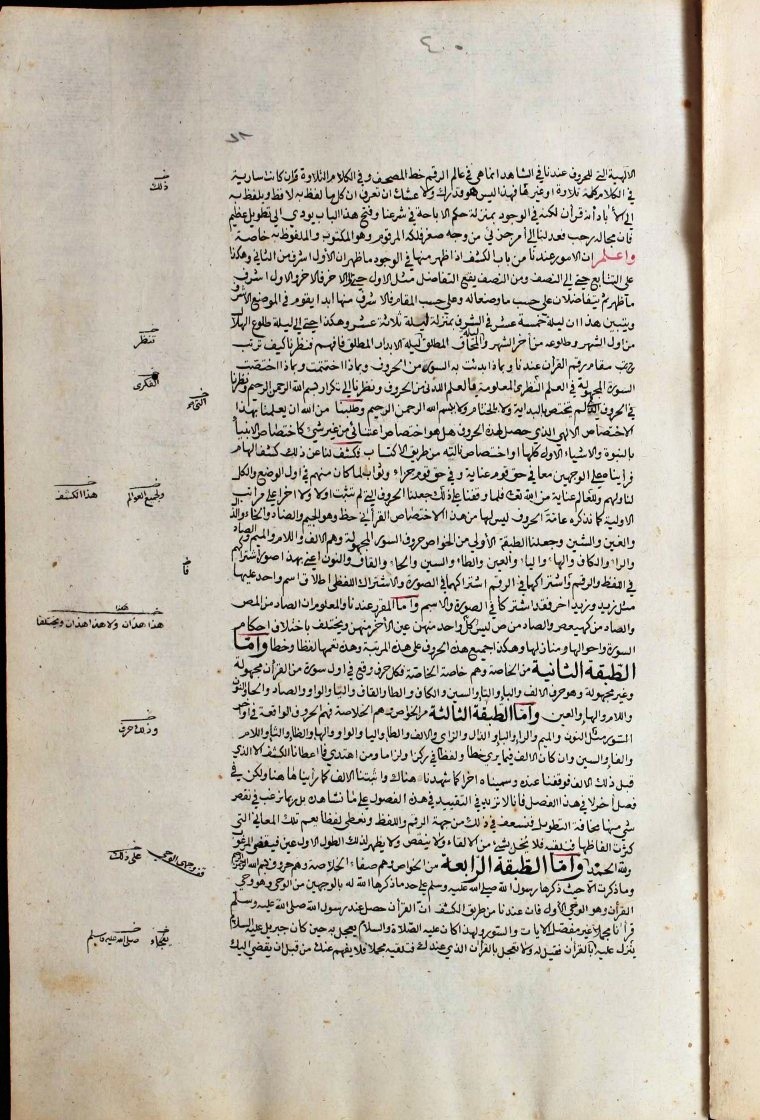 ٤٠٠
الالهية التي للحروف عندنا في الشاهد انما هي في عالم الرقم خط المصحف وفي الكلام التلاوة وان كانت سارية
في الكلام كله تلاوة او غيرها فهذا ليس هو قدرك ولا عشك ان تعرف ان كل ما لفظ به لافظ ويلفظ به
الى الاباد انه قرآن لكنه في الوجود بمنزلة حكم الاباحة في شرعنا وفتح هذا الباب يودي الى تطويل عظيم
فان مجاله رحب فعدلنا الى امر جزئي من وجه صغر فلكه المرقوم وهو المكتوب والملفوظ به خاصة
واعلم ان الامور عندنا من باب الكشف اذا ظهر منها في الوجود ما ظهر ان الاول اشرف من الثاني وهكذا
على التتابع حتى الى النصف ومن النصف يقع التفاضل مثل الاول حتى الى الاخر فالاخر والاول اشرف
ما ظهر ثم يتفاضلان على حسب ما وضعا له وعلى حسب المقام فالاشرف منها ابدا يقوم في الموضع الاشرف
ويتبين هذا ان ليلة خمسة عشر في الشرف بمنزلة ليلة ثلاثة عشر وهكذا حتى الى ليلة طلوع الهلال
من اول الشهر وطلوعه من اخر الشهر وليلة المحاق المطلق ليلة الابدار المطلق فافهم فنظرنا كيف ترتب
مقام رقم القرآن عندنا وبماذا بدئت به السور من الحروف وبماذا اختتمت وبماذا اختصت
السور المجهولة في العلم النظري المعلومة بالعلم اللدني من الحروف ونظرنا الى تكرار بسم الله الرحمن الرحيم ونظرنا
في الحروف التي لم تختص بالبداية ولا بالختام ولا ببسم الله الرحمن الرحيم وطلبنا من الله ان يعلمنا بهذا
الاختصاص الالهي الذي حصل لهذه الحروف هل هو اختصاص اعتنائي من غير شيء كاختصاص الانبياء
بالنبوة والاشياء الاول كلها او اختصاص نالته من طريق الاكتساب فكشف لنا عن ذلك كشف الهام
فرايناه على الوجهين معا في حق قوم عناية وفي حق قوم جزاء وثوابا لما كان منهم في اول الوضع والكل
لنا ولهم وللعالم عناية من الله تعالى فلما وقفنا على ذلك جعلنا الحروف التي لم تثبت اولا ولا اخرا على مراتب
الاولية كما نذكره عامة الحروف ليس لها من هذا الاختصاص القرآني حظ وهو الجيم والضاد والخاء والذال
والغين والشين وجعلنا الطبقة الاولى من الخواص حروف السور المجهولة وهم الالف واللام والميم والصاد
والراء والكاف والهاء والياء والعين والطاء والسين والحاء والقاف والنون اعني بهذا صورة اشتراكهم
في اللفظ والرقم فاشتراكها في الرقم اشتراكها في الصورة والاشتراك اللفظي اطلاق اسم واحد عليها
مثل زيد وزيد اخر فقد اشتركا في الصورة والاسم واما المقرر عندنا والمعلوم ان الصاد من المص
والصاد من كهيعص والصاد من ص ليس كل واحد منهن عين الاخر منهن ويختلف باختلاف احكام
السورة واحوالها ومنازلها وهكذا جميع هذه الحروف على هذه المرتبة وهذه تعمها لفظا وخطا واما
الطبقة الثانية من الخاصة وهم خاصة الخاصة فكل حرف وقع في اول سورة من القرآن مجهولة
وغير مجهولة وهو حرف الالف والياء والباء والسين والكاف والطاء والقاف والتاء والواو والصاد والحاء والنون
واللام والهاء والعين واما الطبقة الثالثة من الخواص وهم الخلاصة فهم الحروف الواقعة في اواخر
السور مثل النون والميم والراء والباء والدال والزاي والالف والطاء والياء والواو والهاء والظاء والثاء واللام
والفاء والسين وان كان الالف فيما يرى خطا ولفظا في ركزا ولزاما ومن اهتدى فما اعطانا الكشف الا الذي
قبل ذلك الالف فوقفنا عنده وسميناه اخرا كما شهدنا هناك واثبتنا الالف كما راينا لها هنا ولكن في
فصل اخر لا في هذا الفصل فانا لا نزيد في التقييد في هذه الفصول على ما نشاهده بل ربما نرغب في نقص
شيء منها مخافة التطويل فنسعف في ذلك من جهة الرقم واللفظ ونعطي لفظا يعم تلك المعاني التي
كثرت الفاظها فنلقيه فلا يخل بشيء من الالقاء ولا ينقص ولا يظهر لذلك الطول الاول عين فينقضي المرغوب
ولله الحمد واما الطبقة الرابعة من الخواص وهم صفاء الخلاصة وهم حروف بسم الله
وما ذكرت الا حيث ذكرها رسول الله صلى الله عليه وسلم على حد ما ذكرها الله له بالوجهين من الوحي وهو وحي
القرآن وهو الوحي الاول فان عندنا من طريق الكشف ان القرآن حصل عند رسول الله صلى الله عليه وسلم
قرآنا مجملا غير مفصل الايات والسور ولهذا كان عليه الصلاة والسلام يعجل به حين كان جبريل عليه السلام
ينزل عليه بالقرآن فقيل له ولا تعجل بالقرآن الذي عندك فتلقيه مجملا فلا يفهم عنك من قبل ان يقضى اليك
ذلك
تنظر
الفكري
ولجميع العوالم
هذا الكشف
هذا هذان ولا هذا هذان ويختلفا
وذلك حرف
على ذلك
صلى الله عليه وسلم